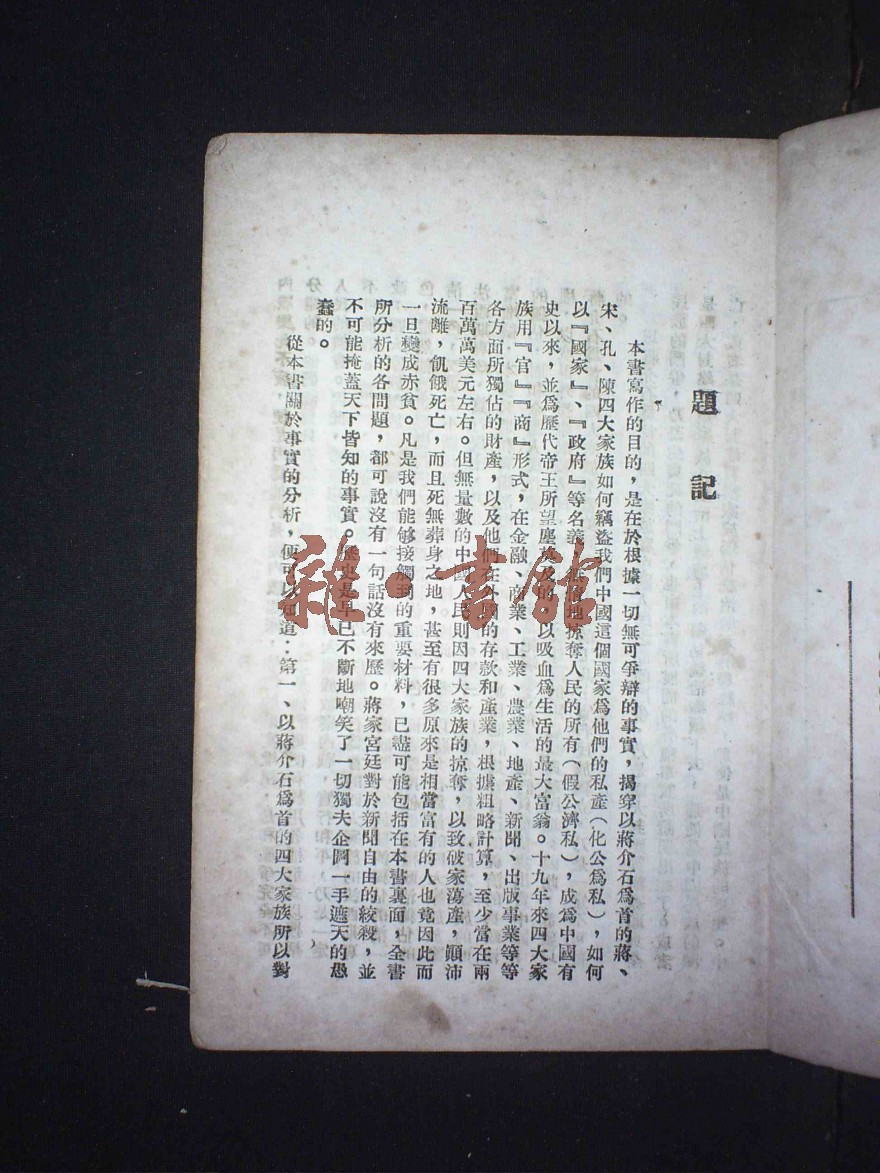 題記
本書寫作的目的，是在於根據一切無可爭辯的事實，揭穿以蔣介石爲首的蔣、
宋、孔、陳四大家族如何竊盜我們中國這個國家爲他們的私產（化公爲私），如何
以『國家』、『政府』等名義無 地掠奪人民的所有（假公濟私），成爲中國有
史以來，並爲歷代帝王所望塵莫及的，以吸血爲生活的最大富翁。十九年來四大家
族用『官』『商』形式，在金融、商業、工業、農業、地產、新聞、出版事業等等
各方面所獨佔的財產，以及他們在外國的存款和產業，根據粗略計算，至少當在兩
百萬萬美元左右。但無量數的中國人民則因四大家族的掠奪，以致破家蕩產，顚沛
流離，飢餓死亡，而且死無葬身之地，甚至有很多原來是相當富有的人也竟因此而
一旦變成赤貧。凡是我們能够接觸到的重要材料，已盡可能包括在本書裏面，全書
所分析的各問題，都可說沒有一句話沒有來歷。蔣家宮廷對於新聞自由的絞殺，並
不可能掩蓋天下皆知的事實。歷史是早已不斷地嘲笑了一切獨夫企圖一手遮天的愚
蠢的。
從本書關於事實的分析，便可以知道：第一、以蔣介石爲首的四大家族所以對
雜·書館